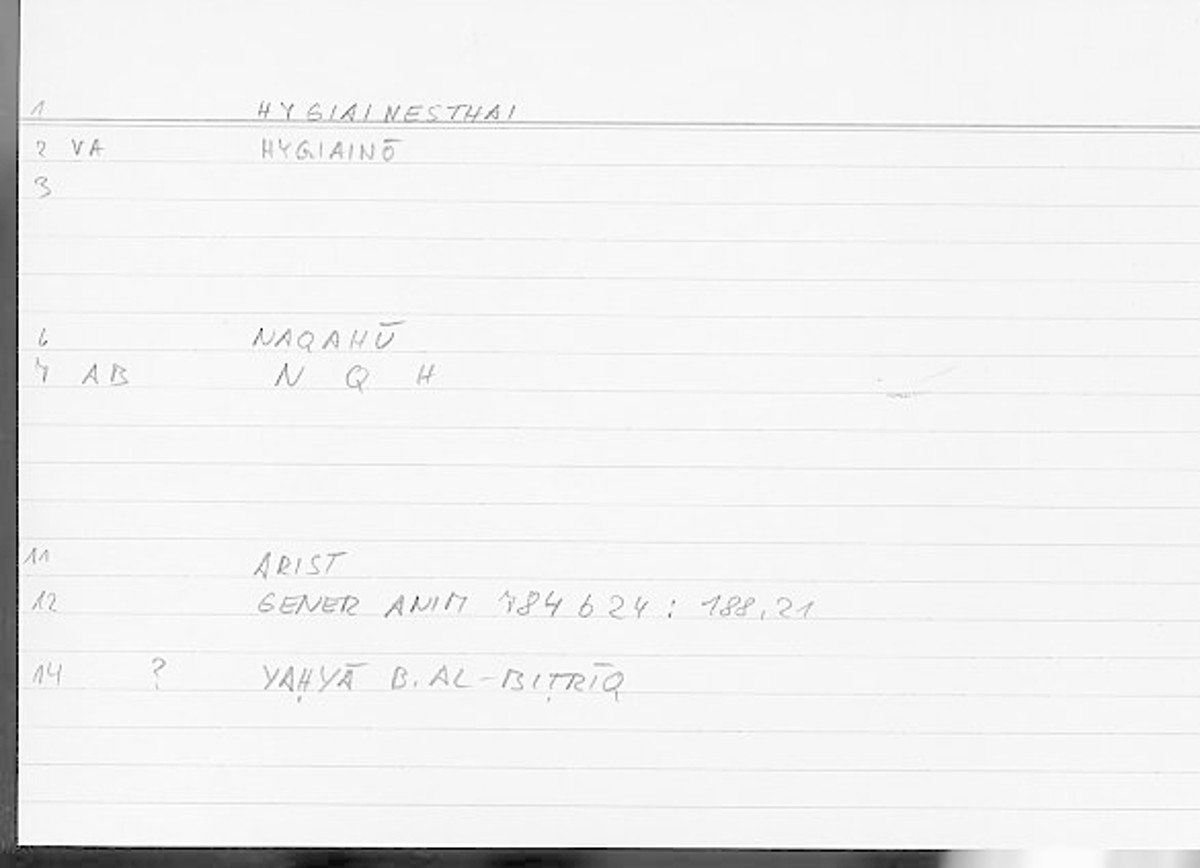 1 HYGIAINESTHAI
2 VA HYGIAINŌ
3
6 NAQAHŪ
7 AB N Q H
11 ARIST
12 GENER ANIM 784 b 24 : 188,21
14 ? YAḤYĀ B. AL-BIṬRĪQ